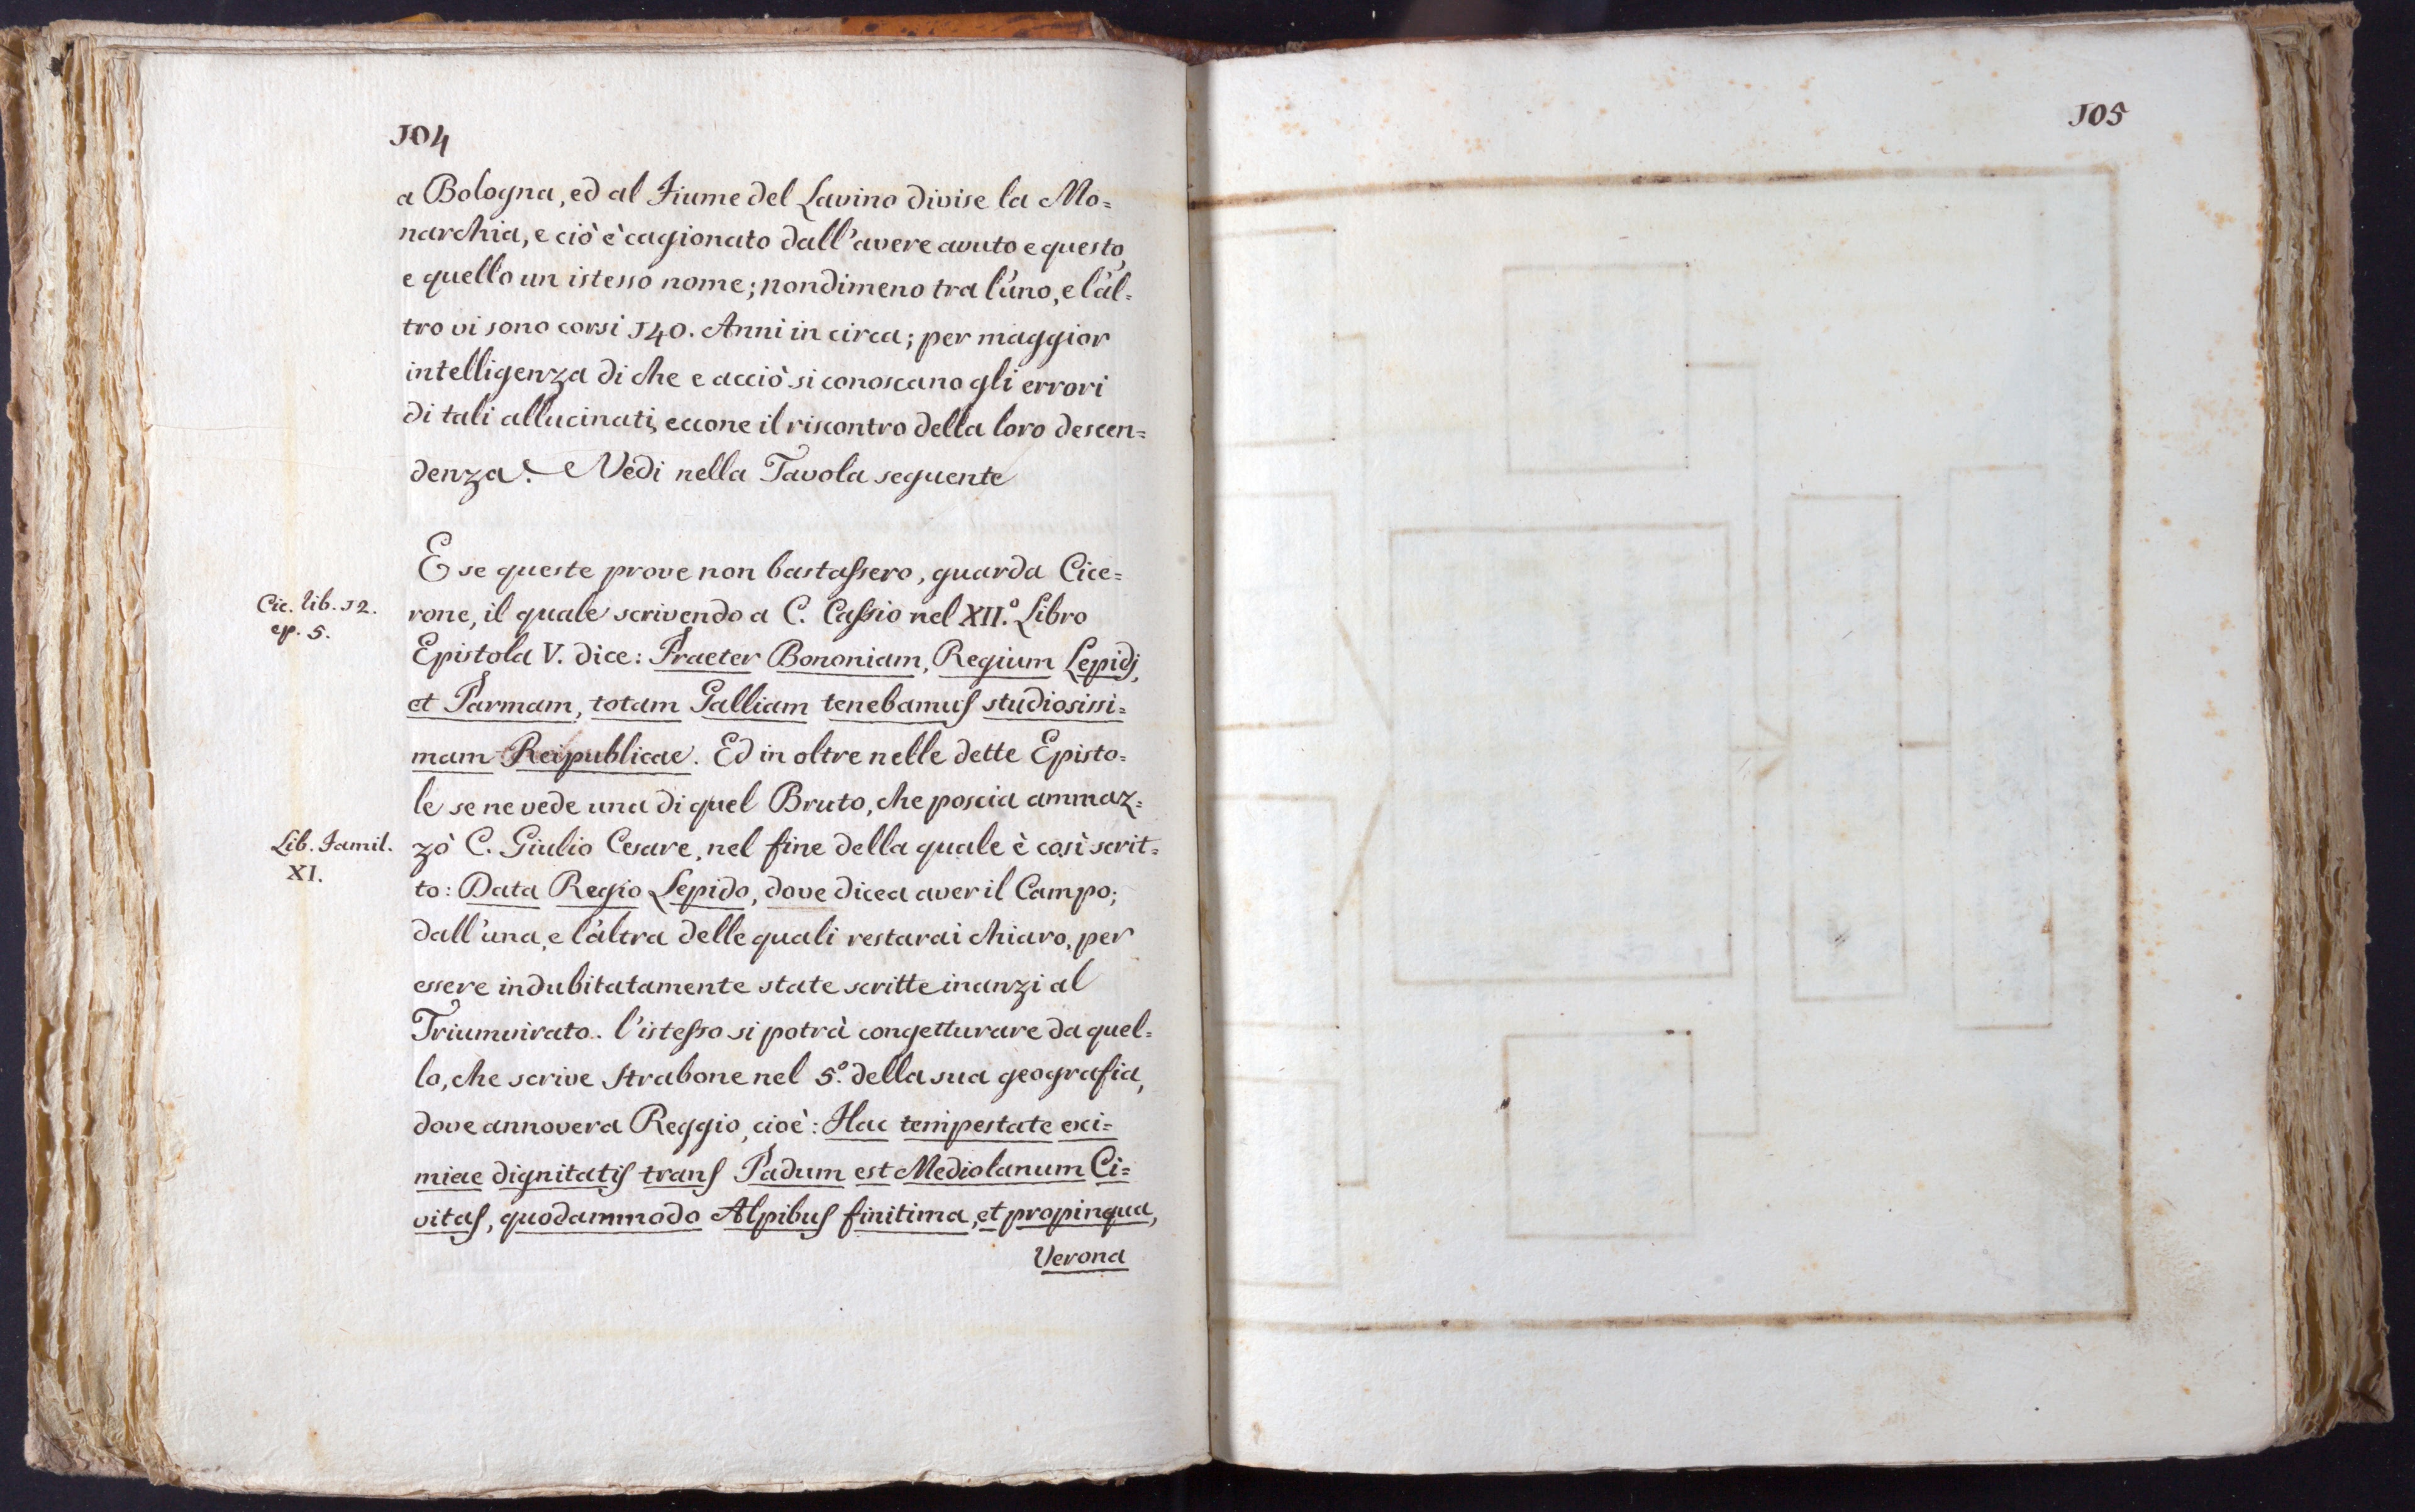 104
a Bologna, ed al Fiume del Lavino divise la Mo=
narchia, e ciò è cagionato dall'avere avuto e questo,
e quello un istesso nome; nondimeno tra l'uno, e l'al=
tro vi sono corsi 140. Anni in circa; per maggior
intelligenza di che e acciò si conoscano gli errori
di tali allucinati, eccone il riscontro della loro descen=
denza. Vedi nella Tavola seguente
E se queste prove non bastassero, guarda Cice=
Cic. lib. 12.
ep. 5.
rone, il quale scrivendo a C. Cassio nel XII.º Libro
Epistola V. dice: Praeter Bononiam, Regium Lepidj,
et Parmam, totam Galliam tenebamus studiosissi=
mam Reipublicae. Ed in oltre nelle dette Episto=
le se ne vede una di quel Bruto, che poscia ammaz=
Lib. Famil.
XI.
zò C. Giulio Cesare, nel fine della quale è così scrit=
to: Data Regio Lepido, dove dicea aver il Campo;
dall'una, e l'altra delle quali restarai chiaro, per
essere indubitatamente state scritte inanzi al
Triumvirato. l'istesso si potrà congetturare da quel=
lo, che scrive Strabone nel 5.º della sua geografia,
dove annovera Reggio, cioè: Hac tempestate exi=
miae dignitatis trans Padum est Mediolanum Ci=
vitas, quodammodo Alpibus finitima, et propinqua,
Verona
105